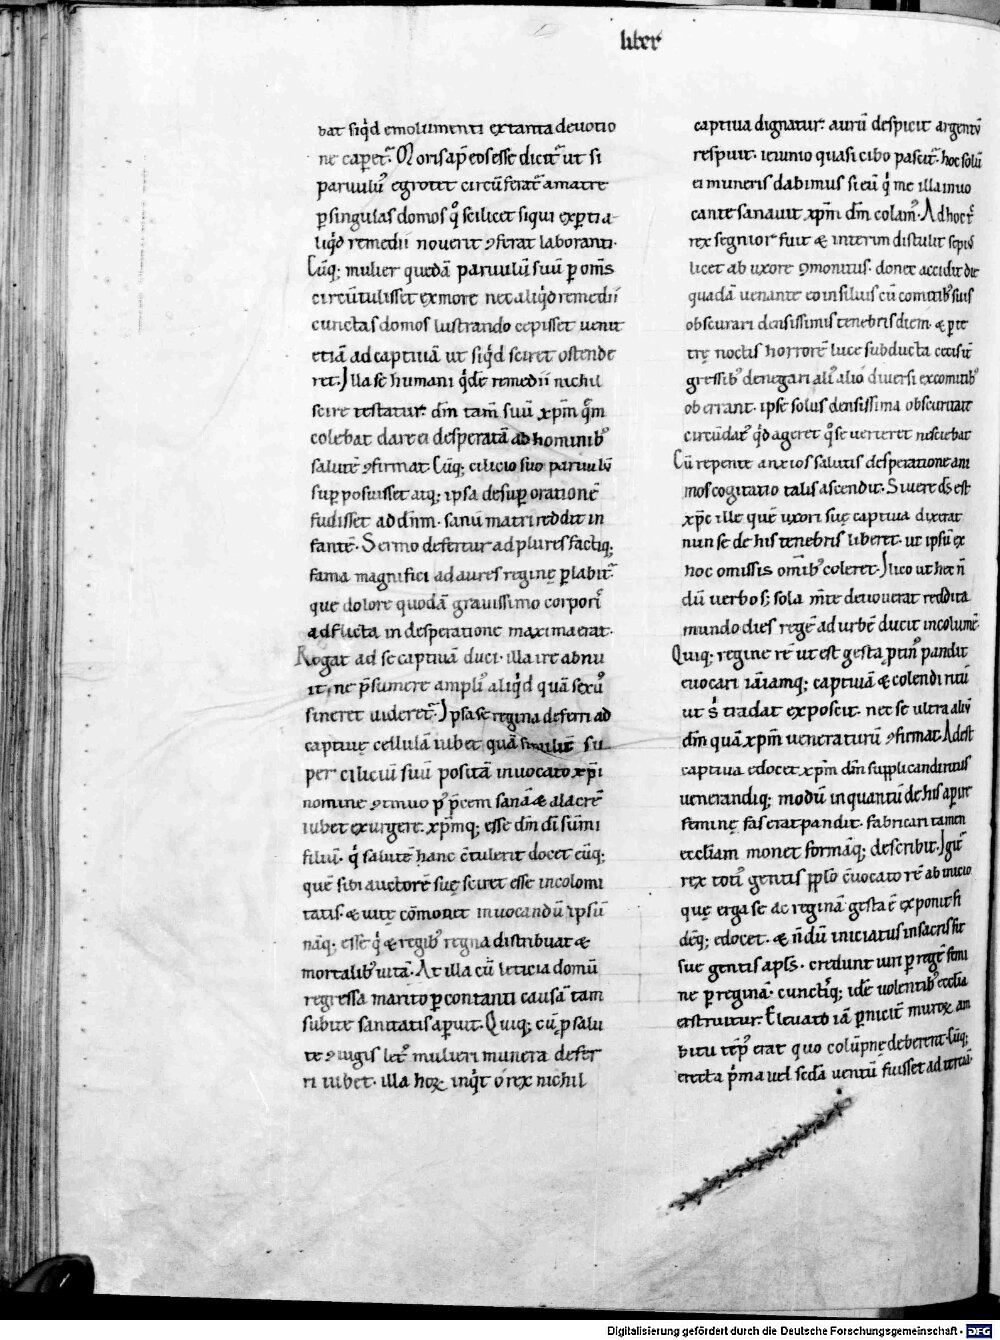 liber
bat siq͛d emolumenti ex tanta deuotio
ne cap̲et᷑. Moris ap̲ eos esse dicit᷑ ut si
paruulu᷒ egrotet circūferat᷑ a matre
p̲ singulas domos q͛ scilicet siqui exp̲ti a
liq͛d remedii nouerit ꝯferat laboranti.
Cūq; mulier quedā paruulū suū p̲ om̄s
circūtulisset ex more nec aliq͛d remedii
cunctas domos lustrando cepisset uenit
etiā ad captiuā ut siq͛d sciret ostende
ret. Illa se humani q͛de remedii nichil
scire testatur. dm̄ tam̄ suū xpm̄ q͛m
colebat dare ei desperatā ab hominib᷒
salutē ꝯfirmat. Cūq; cilicio suo paruulū
sup̲posuisset atq; ipsa desup̲ orationē
fudisset ad dn̄m. sanū matri reddit in
fantē. Sermo defertur ad plures factiq;
fama magnifici ad aures reginę p̲labit᷑
que dolore quodā grauissimo corpori᷒
adflicta in desperatione maxima erat.
Rogat ad se captiuā duci. illa ire abnu
it, ne p̄sumere ampli᷒ aliq͛d quā sexu᷒
sineret uideret᷑. Ipsa se regina deferri ad
captiuę cellulā iubet quā similit̄ su
per ciliciū suū positā inuocato xp̄i
nomine ꝯtinuo p᷒ p̄cem sanā & alacrē
iubet exurgere. xp̄mq; esse dm̄ di sūmi
filiū. q͛ salutē hanc ꝯtulerit docet eūq;
quē sibi auctorē suę sciret esse incolomi
tatis. & uitę cōmonet inuocandū ipsū
nāq; esse q͛ & regib᷒ regna distribuat &
mortalib᷒ uitā. At illa cū leticia domū
regressa marito p̲contanti causā tam
subite sanitatis ap̲uit. Quiq; cū p̲ salu
te ꝯiugis let᷒ mulieri munera defer
ri iubet. illa hoꝝ inq͛t ó rex nichil
captiua dignatur. aurū despicit argentū
respuit. ieiunio quasi cibo pascit᷑. hoc solū
ei muneris dabimus si eū q͛ me illa inuo
cante sanauit xp̄m dm̄ colam᷒. Ad hoc t᷑
rex segnior fuit & interim distulit sepi᷒
licet ab uxore ꝯmonitus. donec accidit die
quadā uenante eo in siluis cū comitib᷒ suis
obscurari densissimis tenebris diem. & p̲ te
trę noctis horrorē luce subducta cecis it̄
gressib᷒ denegari. ali᷒ alió diuersi ex comitib᷒
oberrant. ipse solus densissima obscuritate
circūdat᷒ q͛d ageret q͛ se uerteret nesciebat
Cū repente anxios salutis desperatione ani
mos cogitatio talis ascendit. Si uere ds̄ est
xp̄c ille quē uxori suę captiua dixerat
nun se de his tenebris liberet. ut ipsū ex
hoc omissis om̄ib᷒ coleret. Ilico ut hec ñ
dū uerbo s; sola m̄te deuouerat reddita
mundo dies regē ad urbē ducit incolumē.
Quiq; regine rē ut est gesta p̲tin᷒ pandit
euocari iā iamq; captiuā & colendi ritū
ut s͛ tradat exposcit. nec se ultra aliū
dm̄ quā xp̄m ueneraturū ꝯfirmat. Adest
captiua edocet xp̄m dm̄ supplicandi ritus
uenerandiq; modū inquantū de his ap̲ire
feminę fas erat pandit. fabricari tamen
ecclīam monet formāq; describit. Igit᷑
rex toti᷒ gentis pp̲lo ꝯuocato rē ab inicio
quę erga se ac reginā gesta ē exponit fi
dēq; edocet. & ñdū iniciatus in sacris fit
sue gentis apls̄. credunt uiri p̲ regē femi
ne p̲ reginā. cunctiq; idē uolentib᷒ ecclīa
erstruitur. Eleuato iā p̲nicit̄ muroꝝ am
bitu tēp᷒ erat quo colūpnę deberent. Cūq;
erecta p͛ma uel sc̄da uentū fuisset ad terciā.
Digitalisierung gefördert durch die Deutsche Forschungsgemeinschaft - DFG